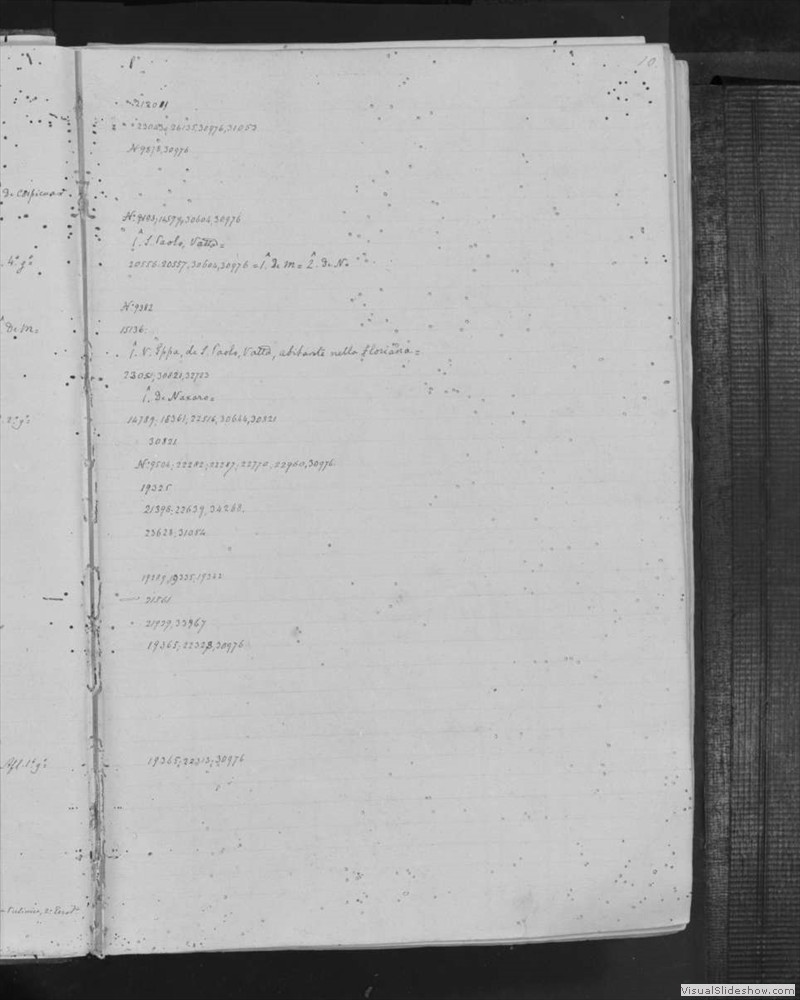 10.
21301
23053; 26135, 30976, 31053
Nº 9878, 30976
De
Nº 9105; 14579, 30604, 30976
1. S. Paolo, Vatta =
4º gº
20556. 20557, 30604, 30976 = 1. De M = 2. De N =
Nº 9382
De M =
15136.
1. N. Eppa, de S. Paolo, Vatta, abitante nella Floriana =
23051, 30821, 32723
1. De Naxaro =
14789; 15361, 22516, 30644, 30821
30821
Nº 9524; 22282; 22287; 22770, 22960, 30976
19325
21398; 22639, 34268.
23628; 31054
19289, 19335, 19342
21561
21929, 33967
19365; 22328, 30976
19365; 22313; 30976
VisualSlideshow.com